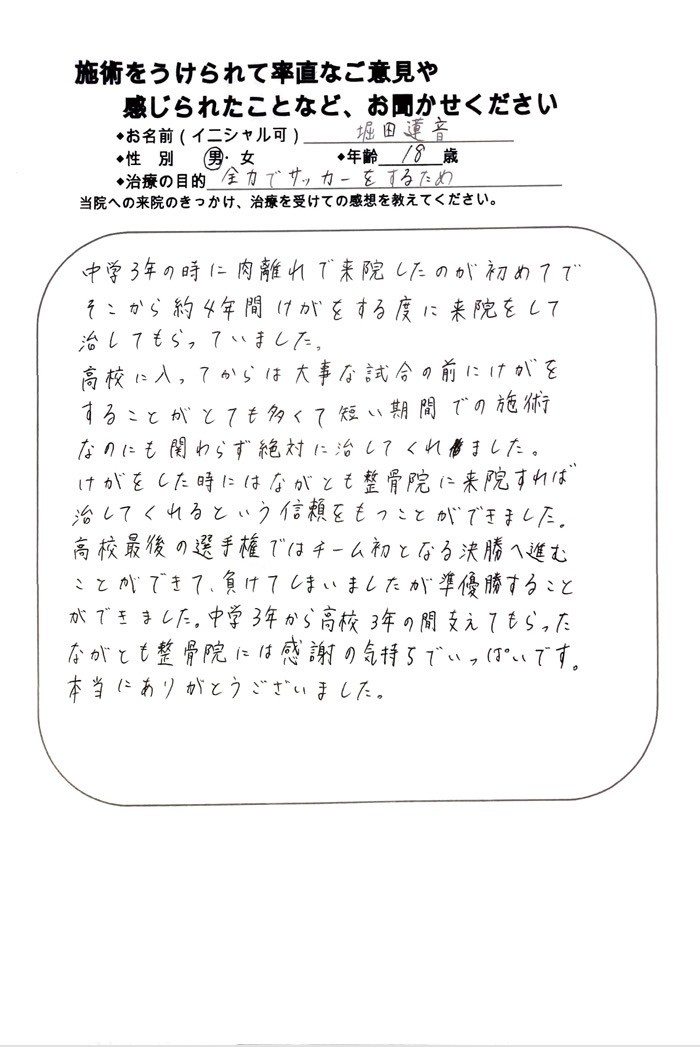 施術をうけられて率直なご意見や
感じられたことなど、お聞かせください
◆お名前（イニシャル可） 堀田蓮音
◆性 別 男・女 ◆年齢 18 歳
◆治療の目的 全力でサッカーをするため
当院への来院のきっかけ、治療を受けての感想を教えてください。
中学3年の時に肉離れで来院したのが初めてで
そこから約4年間けがをする度に来院をして
治してもらっていました。
高校に入ってからは大事な試合の前にけがを
することがとても多くて短い期間での施術
なのにも関わらず絶対に治してくれました。
けがをした時にはながとも整骨院に来院すれば
治してくれるという信頼をもつことができました。
高校最後の選手権ではチーム初となる決勝へ進む
ことができて、負けてしまいましたが準優勝すること
ができました。中学3年から高校3年の間支えてもらった
ながとも整骨院には感謝の気持ちでいっぱいです。
本当にありがとうございました。